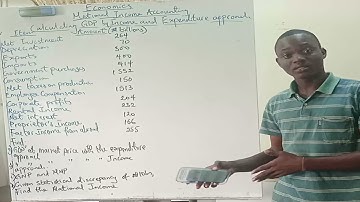 Economics
National Income Accounting
Calculating GDP by Income and Expenditure approach
Item Amount (# billions)
Net Investment 264
Depreciation
Exports
Imports 414
Government purchases 1
Consumption
Net taxes on production
Employee Compensation 1513
Corporate profits 204
Rental Income 232
Net interest 120
Proprietor's Income 166
Factor Income from abroad 255
Find
GDP at market price with the expenditure
approach
" " " " Income
approach
GNP and NNP
Given statistical discrepancy of
find the National Income